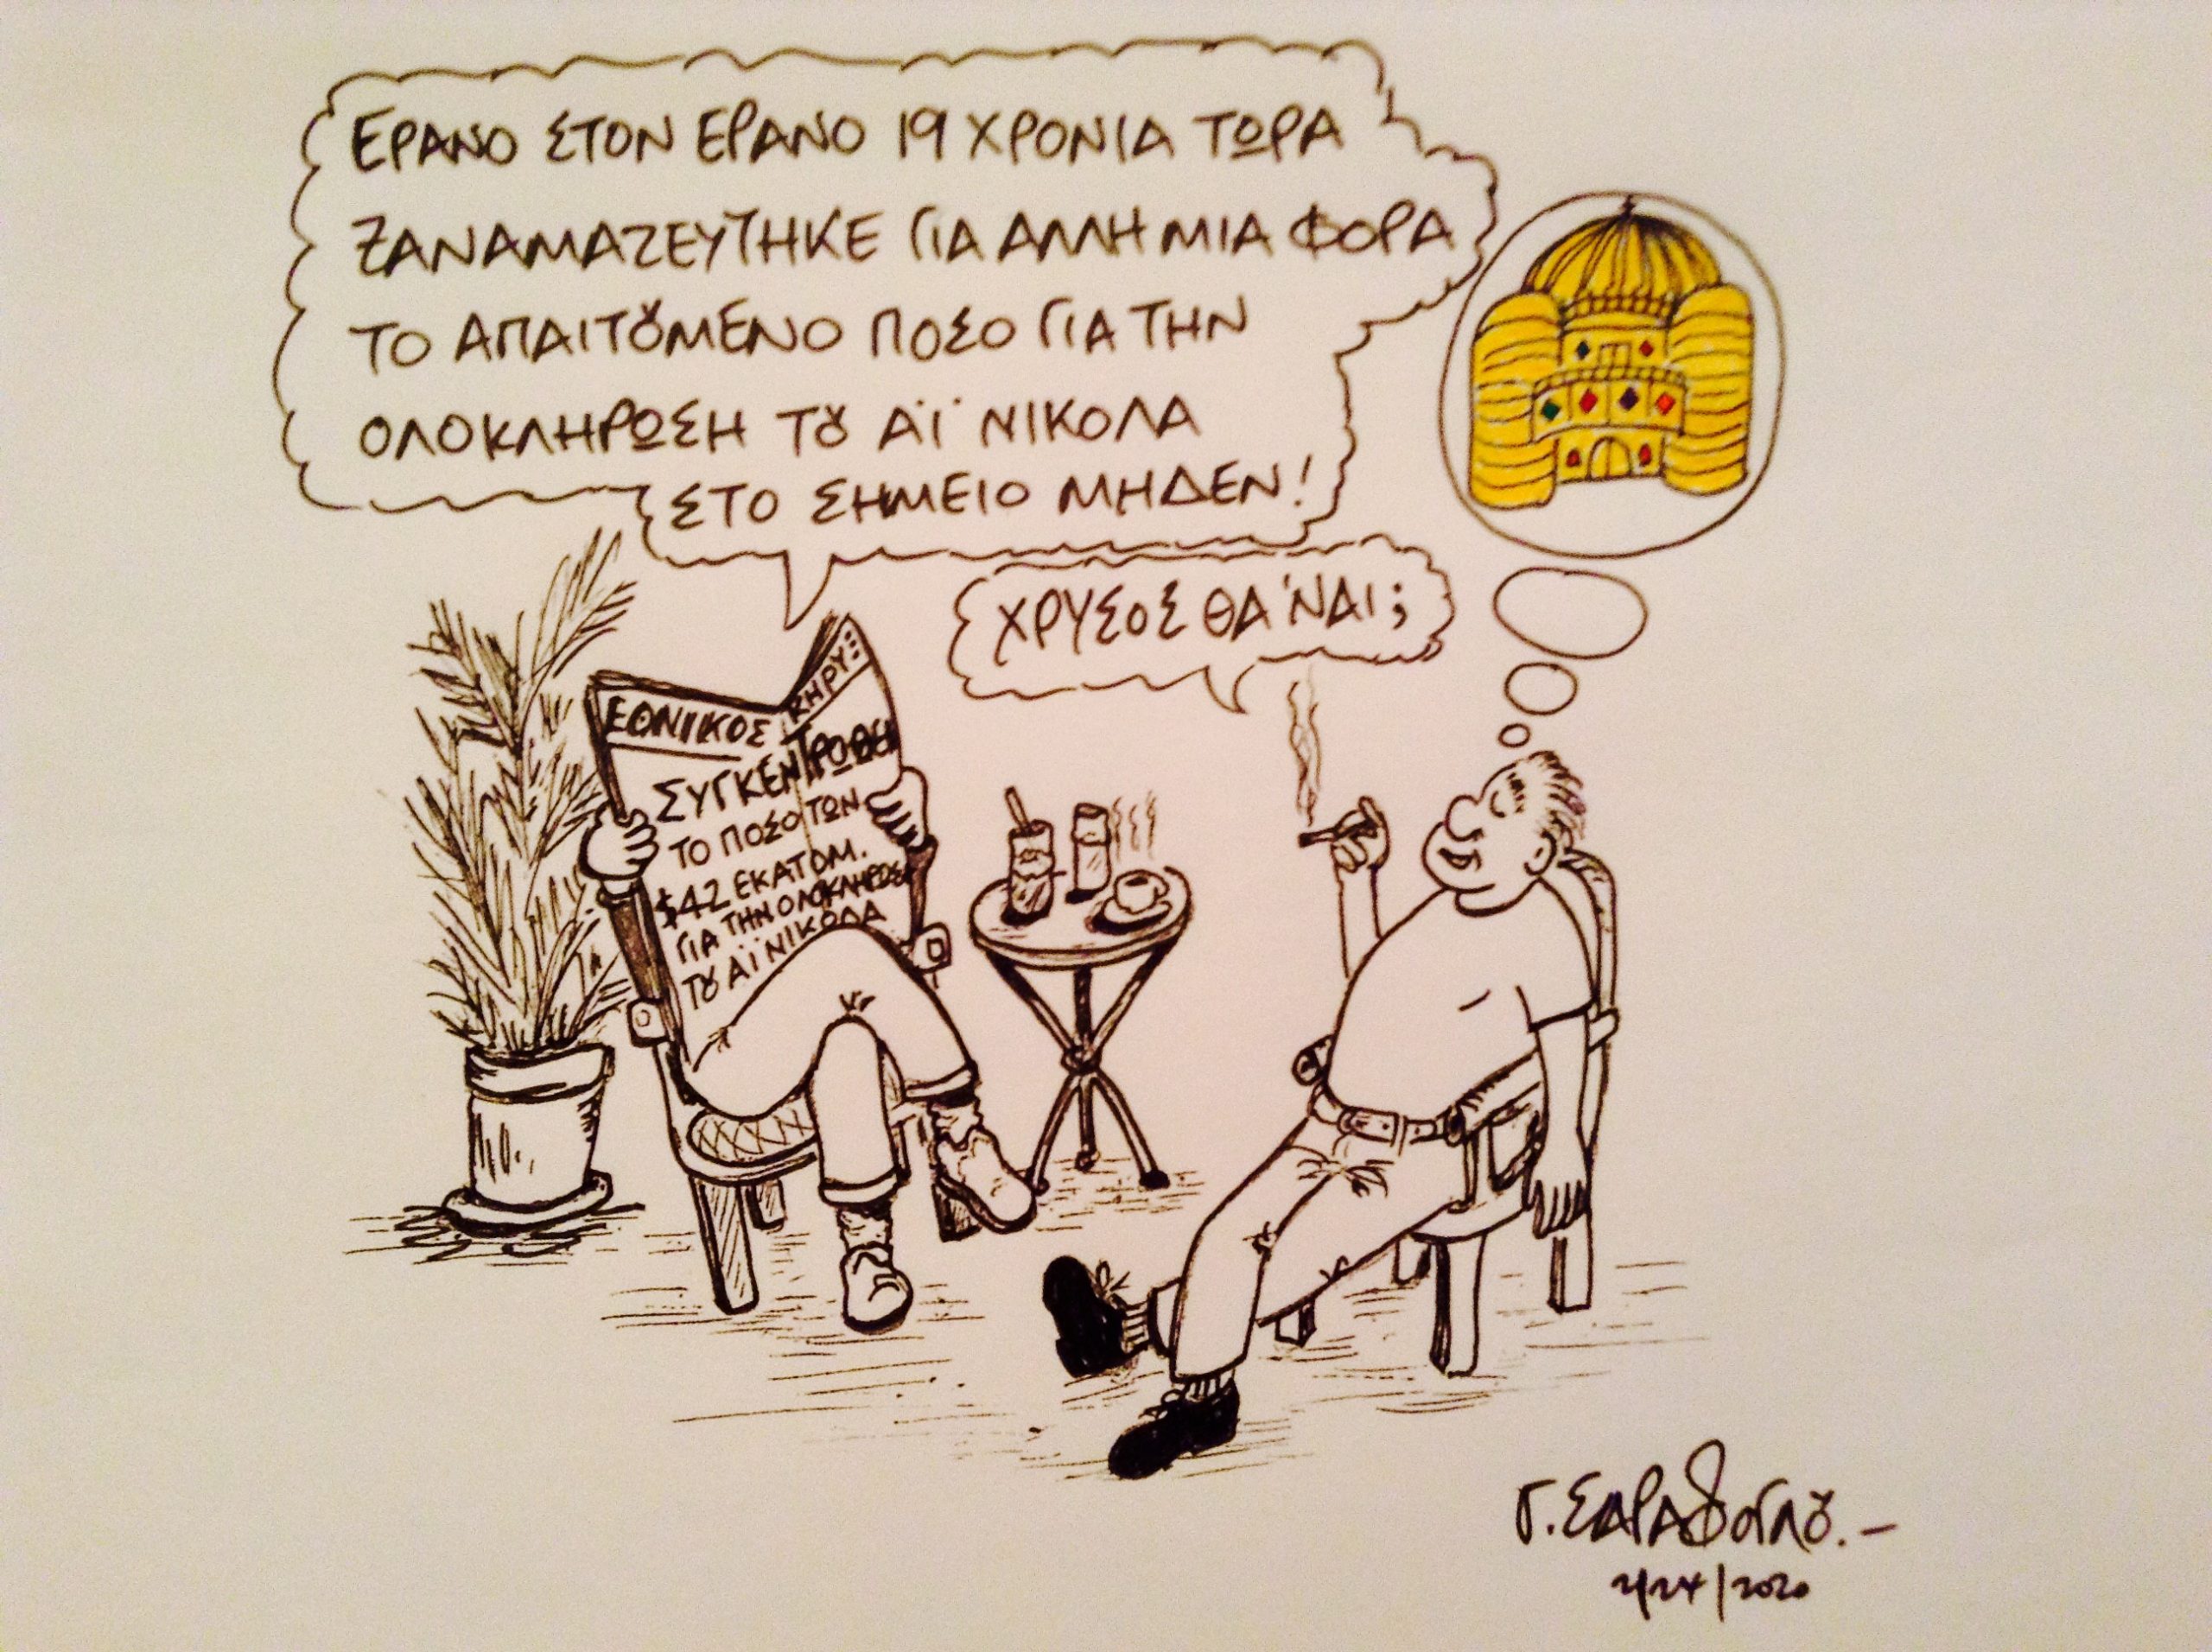 ΕΡΑΝΟ ΣΤΟΝ ΕΡΑΝΟ 19 ΧΡΟΝΙΑ ΤΩΡΑ
ΞΑΝΑΜΑΖΕΥΤΗΚΕ ΓΙΑ ΑΛΛΗ ΜΙΑ ΦΟΡΑ
ΤΟ ΑΠΑΙΤȢΜΕΝΟ ΠΟΣΟ ΓΙΑ ΤΗΝ
ΟΛΟΚΛΗΡΩΣΗ ΤȢ ΑΪ ΝΙΚΟΛΑ
ΣΤΟ ΣΗΜΕΙΟ ΜΗΔΕΝ!
ΧΡΥΣΟΣ ΘΑ 'ΝΑΙ;
ΕΘΝΙΚΟΣ ΚΗΡΥΞ
ΣΥΓΚΕΝΤΡΩΘΗ
ΤΟ ΠΟΣΟ ΤΩΝ
$42 ΕΚΑΤΟΜ.
ΓΙΑ ΤΗΝ ΟΛΟΚΛΗΡΩΣΗ
ΤȢ ΑΪ ΝΙΚΟΛΑ
Γ. ΣΑΡΑΦΟΓΛȢ.-
2/24/2020